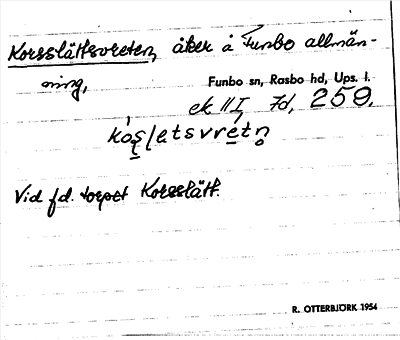 Korsslättsvreten, åker å Funbo allmän-
ning,
Funbo sn, Rasbo hd, Ups. l.
ek III, 7d, 259.
Vid f.d. torpet Korsslätt.
R. OTTERBJÖRK 1954